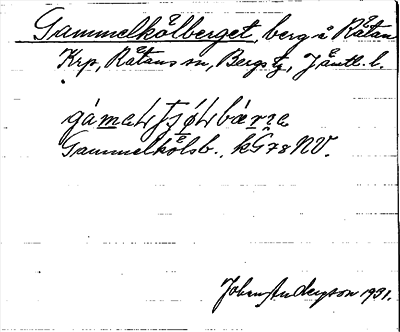 Gammelkölberget, berg å Råtans
Krp, Råtans sn, Bergs tg, Jämtl. l.
Gammelkölsb., kG78NV.
Johan Anderzson 1931.